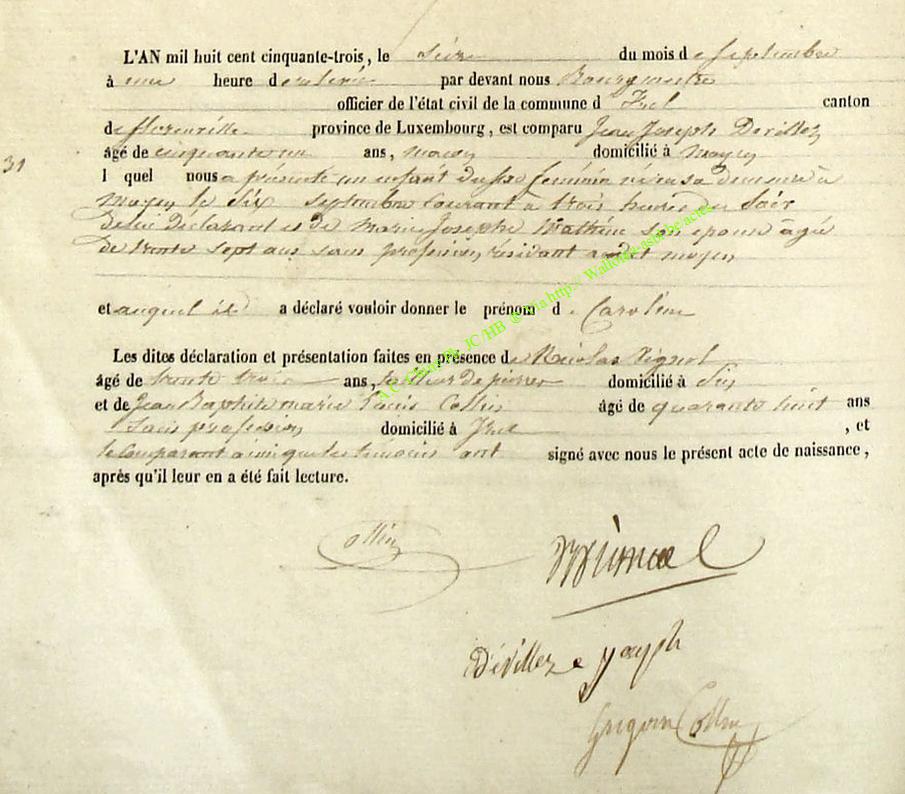 L'AN mil huit cent cinquante-trois, le Seize du mois de Septembre
à une heure de relevée par devant nous Bourgmestre
officier de l'état civil de la commune d'Izel canton
de florenville province de Luxembourg, est comparu Jean Joseph Devillez
âgé de cinquante un ans, maçon domicilié à moyen
31
lequel nous a présenté un enfant du sexe féminin né en sa demeure à
moyen le Six Septembre courant à trois heures du Soir
de lui déclarant et de Marie Josephe Wathine son épouse âgée
de trente sept ans sans profession, résidant audit moyen
et auquel il a déclaré vouloir donner le prénom de Caroline
Les dites déclaration et présentation faites en présence de Nicolas
âgé de trente trois ans, tailleur de pierres domicilié à
et de Jean Baptiste marie Louis Collin âgé de quarante huit ans
Sans profession domicilié à Izel, et
le Comparant ainsi que les temoins ont signé avec nous le présent acte de naissance,
après qu'il leur en a été fait lecture.
Collin
Devillez joseph
Collin